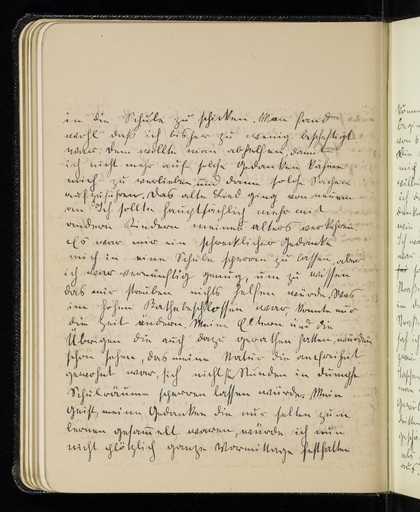 in die Schule zu schicken. Man fand
wohl daß ich bisher zu wenig beschäftigt
war. Dem wollte man abhelfen, damit
ich nicht mehr auf solche Gedanken käme
mich zu verlieben und dann solche Sachen
auszuführen. Das alte Lied ging von neuem
an. Ich sollte hauptsächlich mehr mit
anderen Kindern meines Alters verkehren.
Es war mir ein schrecklicher Gedanke
mich in eine Schule sperren zu lassen, aber
ich war vernünftig genug, um zu wissen
das mir sträuben nichts helfen würde. Was
im hohen Rathe beschlossen war, konnte nur
die Zeit ändern. Meine Eltern und die
Übrigen die auch dazu gerathen hatten, würden
schon sehen, das meine Natur die an Freiheit
gewohnt war, sich nicht 6 Stunden in dumpfe
Schulräume sperren lassen würde. Mein
Geist, meine Gedanken die nur selten zum
lernen gesammelt waren, würde ich nun
nicht plötzlich ganze Vormittage festhalten